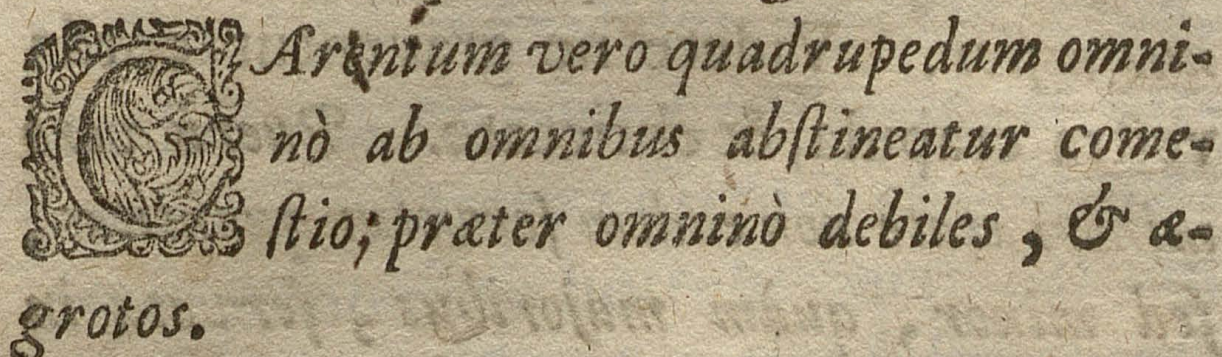 CArentum vero quadrupedum omni-
nò ab omnibus abſtineatur come-
ſtio; præter omninò debiles, & æ-
grotos.